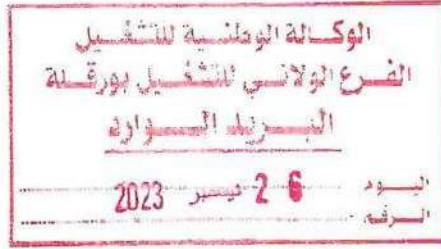 الوكالة الوطنية للتشغيل
الفرع الولائي للتشغيل بورقلة
البريد الوارد
اليوم 26 ديسمبر 2023
الرقم